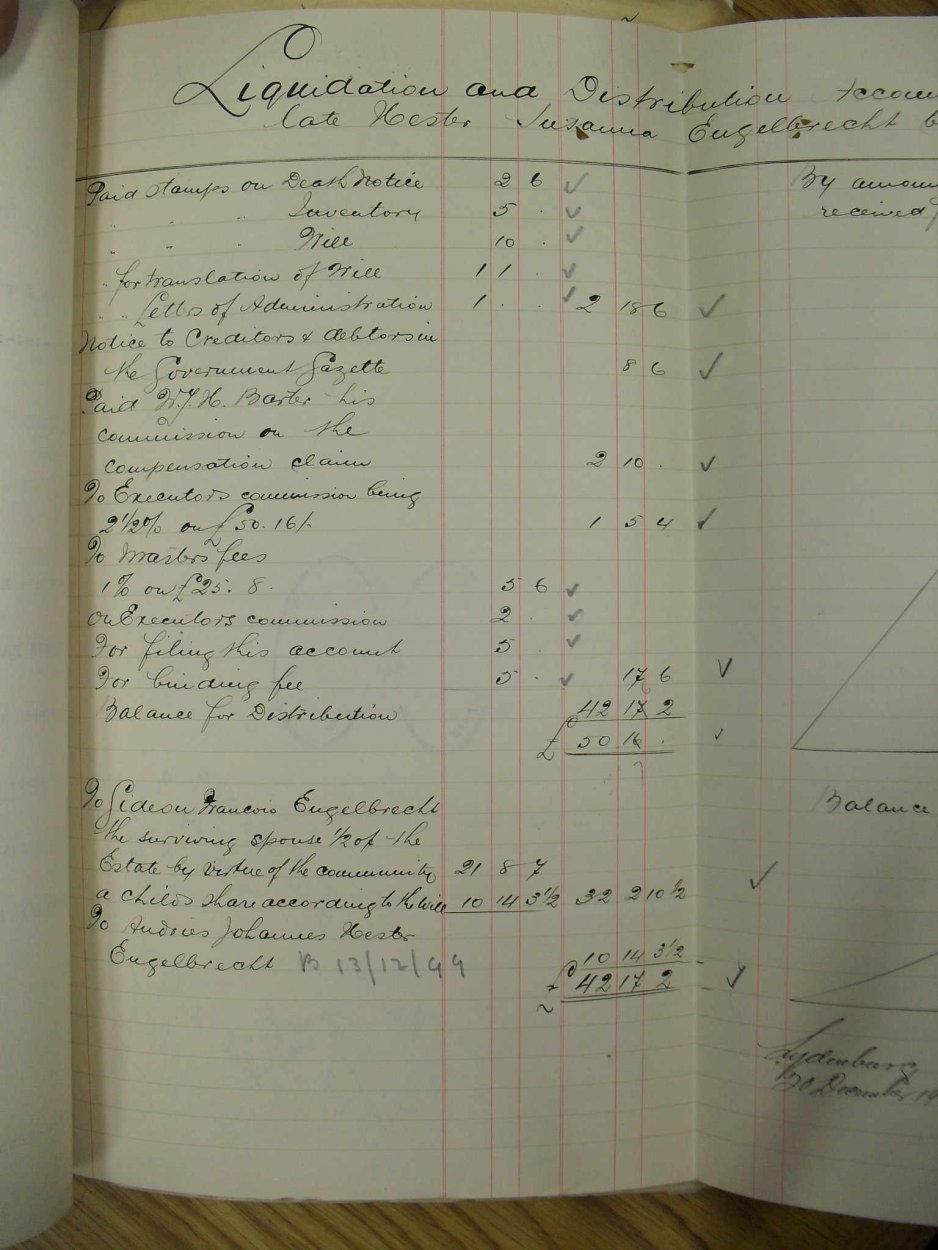 Liquidation and Distribution Accoun
late Hester Susanna Engelbrecht b
Paid stamps on Death Notice 2 6
" " " Inventory 5 .
" " " Will 10 .
" for translation of Will 1 1 .
" " Letters of Administration 1 . . 2 18 6
Notice to Creditors & debtors in
the Government Gazette 8 6
Paid W.J.H. Barter his
commission on the
compensation claim 2 10 .
To Executors commission being
2 1/2 % on £50. 16/- 1 5 4
To Masters fees
1% on £25. 8. 5 6
On Executors commission 2 .
For filing this account 5 .
For binding fee 5 . 17 6
Balance for Distribution 42 17 2
£ 50 16 .
To Gideon Francois Engelbrecht
the surviving spouse 1/2 of the
Estate by virtue of the community 21 8 7
a childs share according to the Will 10 14 3 1/2 32 2 10 1/2
To Andries Johannes Hester
Engelbrecht B 13/12/99 10 14 3 1/2
£ 42 17 2
By amoun
received
Balance
Lydenburg
20 December 19